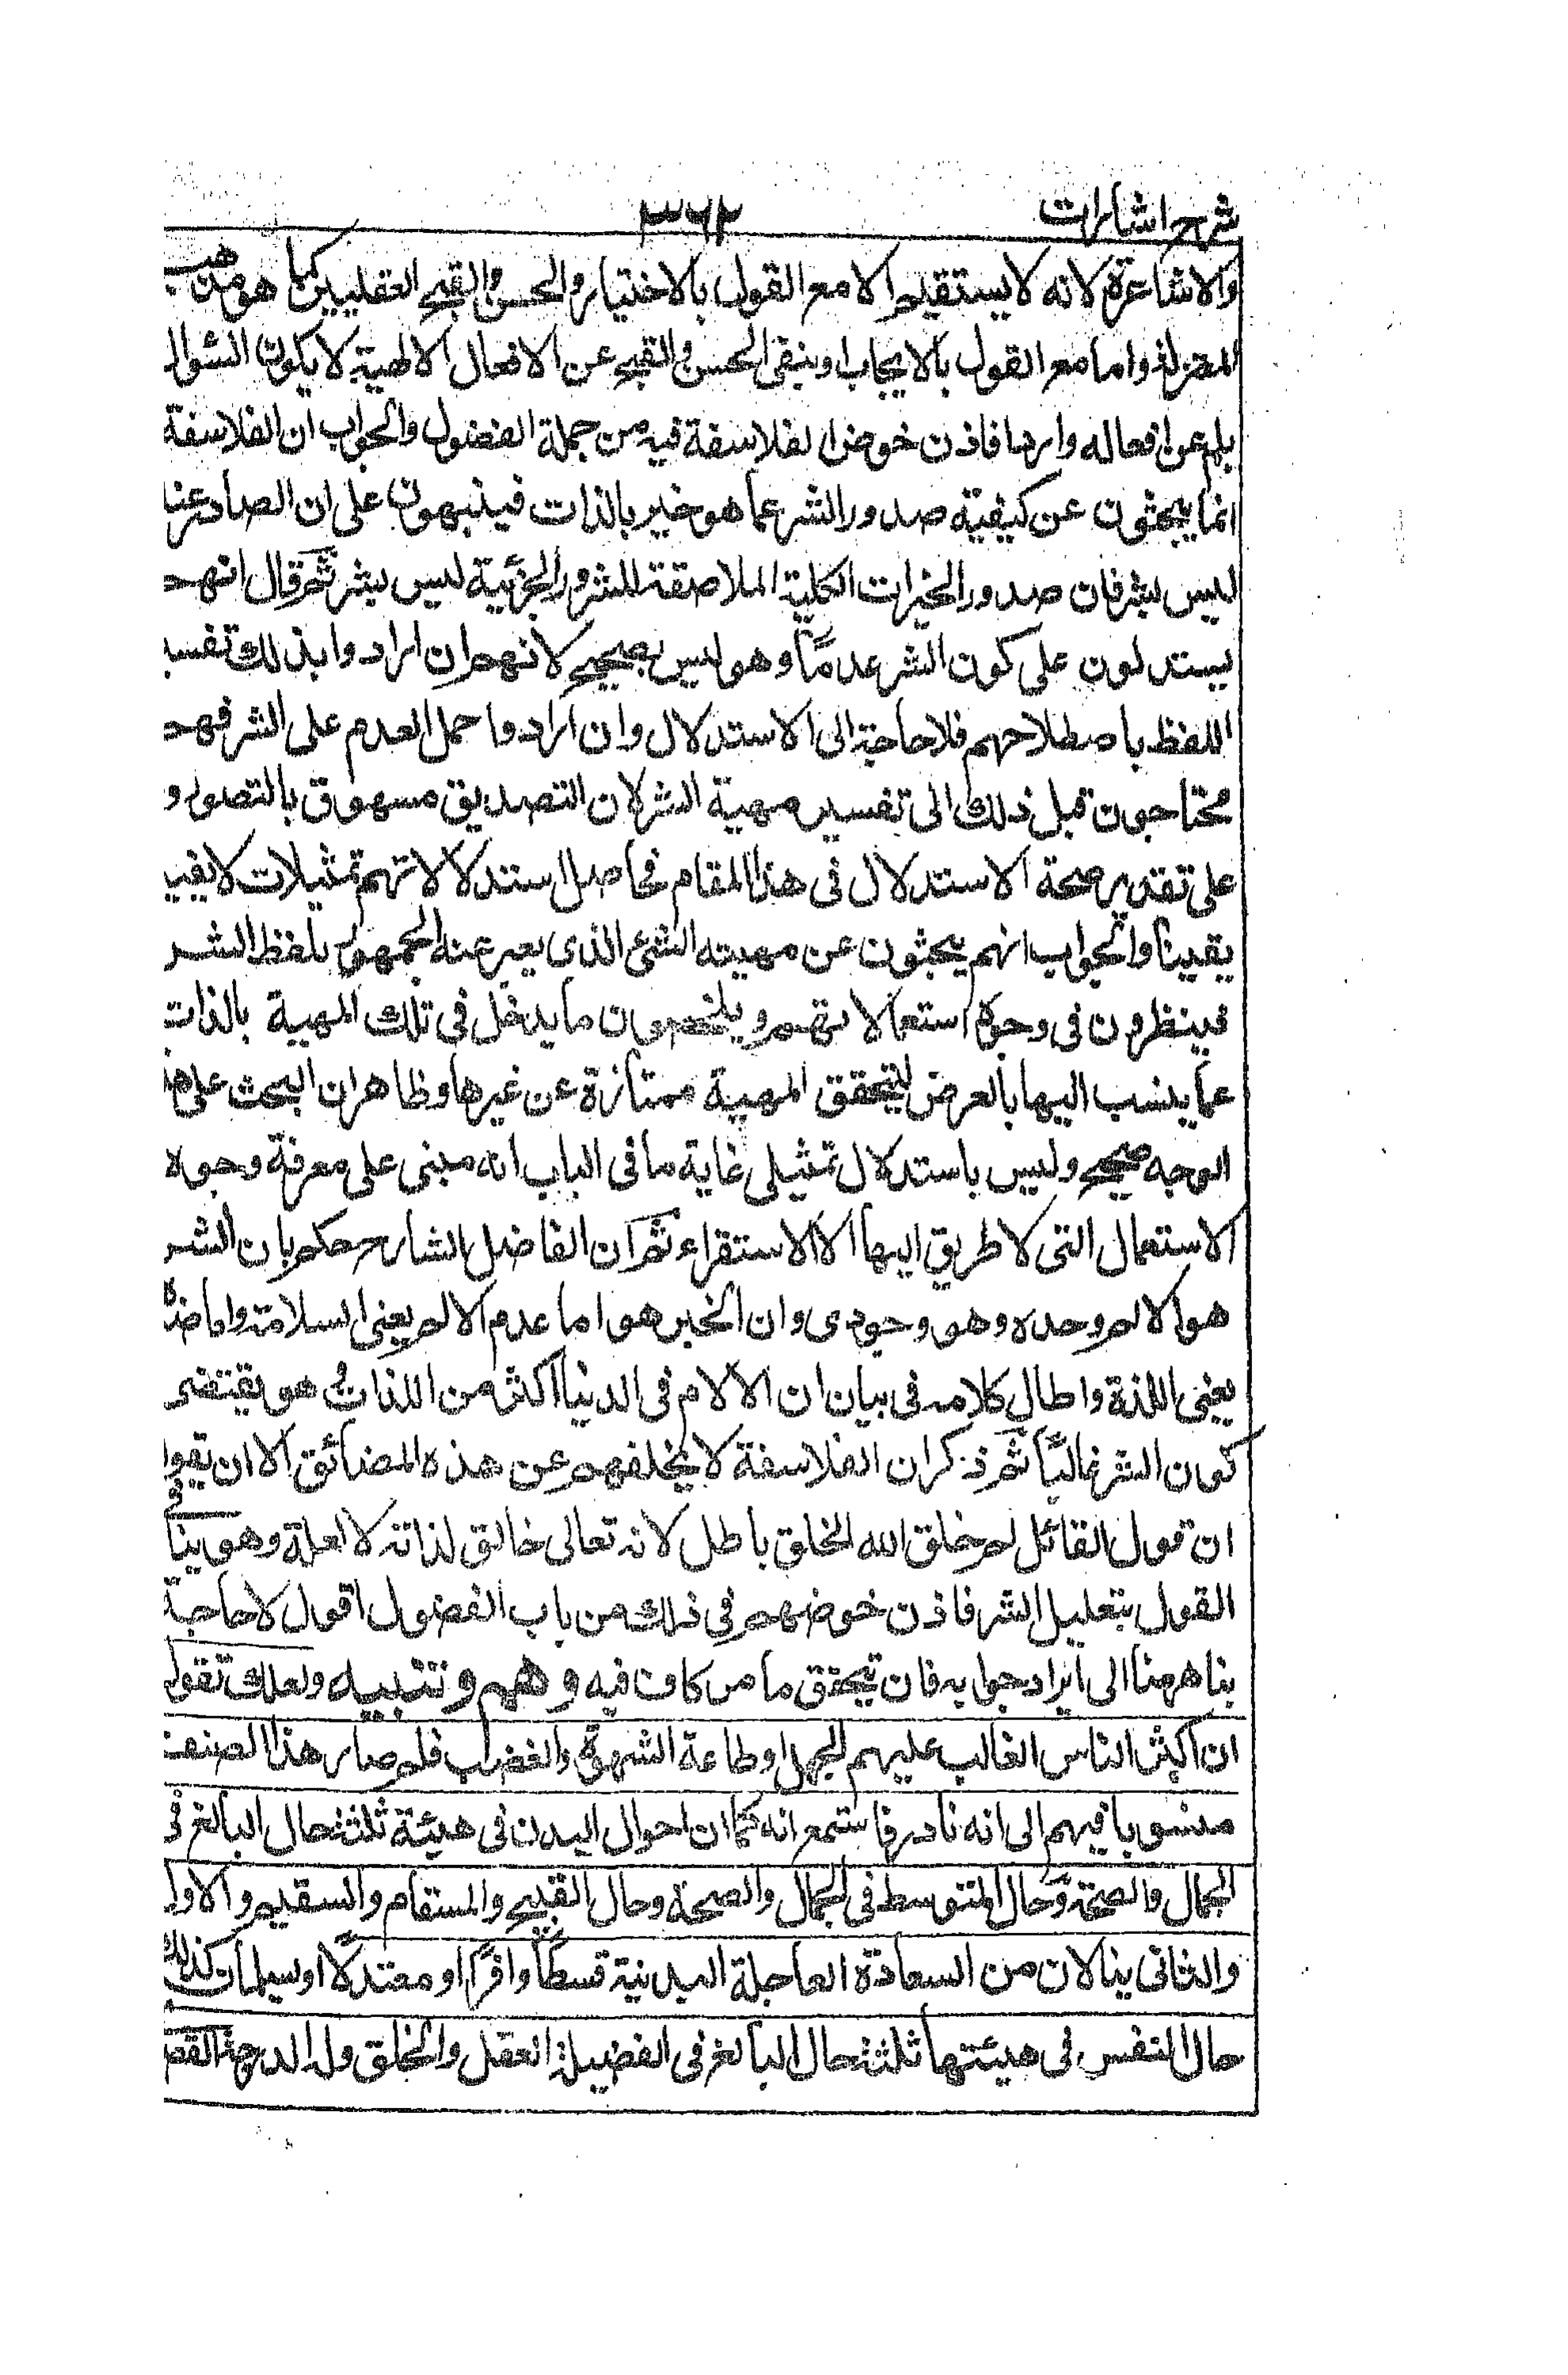 شرح اشارات ٣٦٢
والاشاعرة لانه لا يستقيم الا مع القول بالاختيار والحسن والقبح العقليين كما هو مذهب
المعتزلة واما مع القول بالايجاب او بنفى الحسن والقبح عن الافعال الالهية لا يكون السوال
بلم عن افعاله واردا فاذن خوض الفلاسفة فيه من جملة الفضول والجواب ان الفلاسفة
انما يبحثون عن كيفية صدور الشر عما هو خير بالذات فينبهون على ان الصادر عنا
ليس بشر فان صدور الخيرات الكلية الملاصقة للشرور الجزئية ليس بشر ثم قال انهم
يستدلون على كون الشر عدمًا وهو ليس بصحيح لانهم ان ارادوا بذلك تفسير
اللفظ باصطلاحهم فلا حاجة الى الاستدلال وان ارادوا حمل العدم على الشر فهم
محتاجون قبل ذلك الى تفسير مهية الشر لان التصديق مسبوق بالتصور و
على تقدير صحة الاستدلال فى هذا المقام فحاصل استدلالاتهم تمثيلات لا يفيد
يقينا والجواب انهم يبحثون عن مهيته الشئ الذى يعبر عنه الجمهور بلفظ الشر
فينظرون فى وجوه استعمالاتهم ويلخصون ما يدخل فى تلك المهية بالذات
عما ينسب اليها بالعرض ليتحقق المهية ممتازة عن غيرها وظاهر ان البحث على هذا
الوجه صحيح وليس باستدلال تمثيلى غاية ما فى الباب انه مبنى على معرفة وجوه
الاستعمال التى لا طريق اليها الا الاستقراء ثم ان الفاضل الشارح حكم بان الشر
هو الالم وحده وهو وجودى وان الخير هو اما عدم الالم يعنى السلامة واما ضده
يعنى اللذة واطال كلامه فى بيان ان الالام فى الدنيا اكثر من اللذات وهو يقتضى
كون الشر غالبًا ثم ذكر ان الفلاسفة لا يخلصهم عن هذه المضائق الا ان يقولوا
ان قول القائل لم خلق الله الخلق باطل لانه تعالى خالق لذاته لا لعلة وهو ينافى
القول بتعليل الشر فاذن خوضهم فى ذلك من باب الفضول اقول لا حاجة
بنا ههنا الى ايراد جوابه فان تحقق ما مر كاف فيه وهم وتنبيه ولعلك تقول
ان اكثر الناس الغالب عليهم الجهل او طاعة الشهوة والغضب فلم صار هذا الصنف
منسوبا فيهم الى انه نادر فاستمع انه كما ان احوال البدن فى هيئة ثلثة حال البالغ فى
الجمال والصحة وحال المتوسط فى الجمال والصحة وحال القبيح والمسقام والسقيم والاول
والثانى ينالان من السعادة العاجلة البدنية قسطًا وافرًا او معتدلًا او يسلمان كذلك
حال النفس فى هيئتها ثلثة حال البالغ فى الفضيلة العقل والخلق وله الدرجة